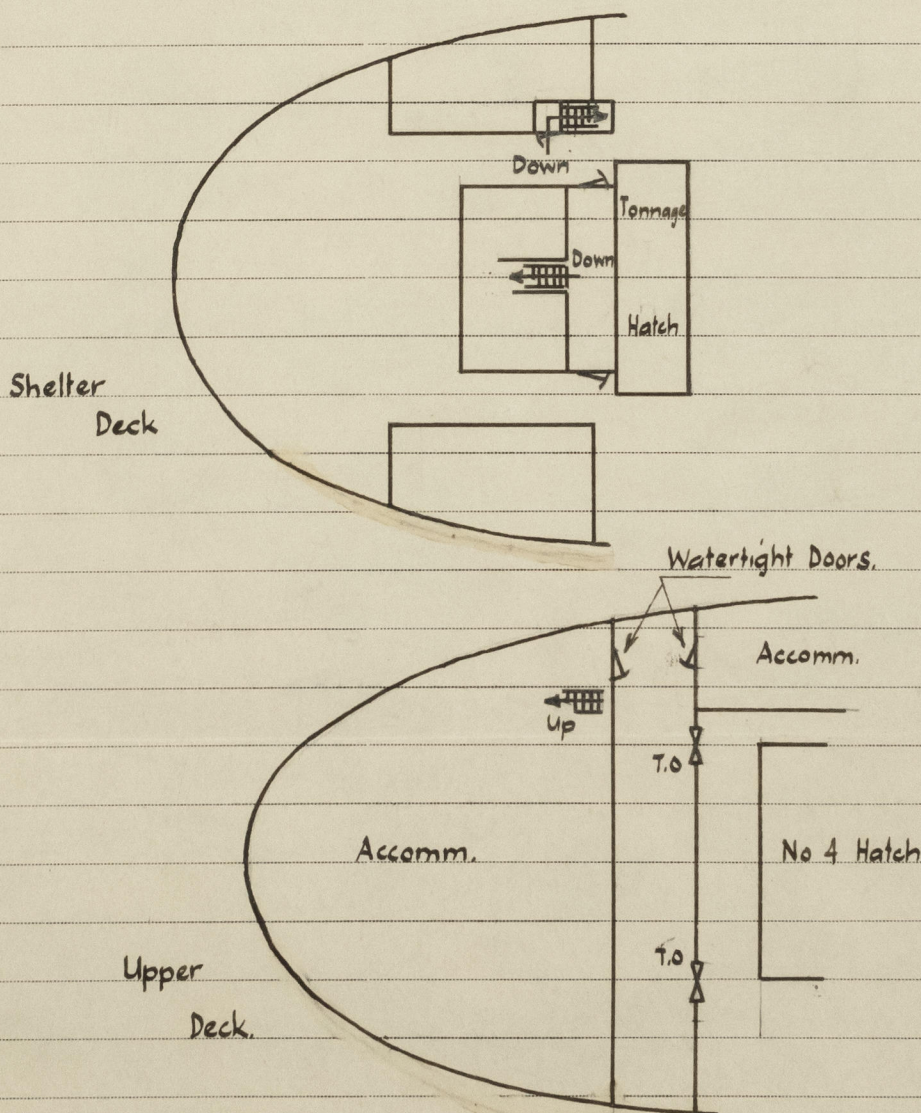 Down
Tonnage
Down
Hatch
Shelter
Deck
Watertight Doors.
Accomm.
Up
T.O
Accomm.
No 4 Hatch
T.O
Upper
Deck.